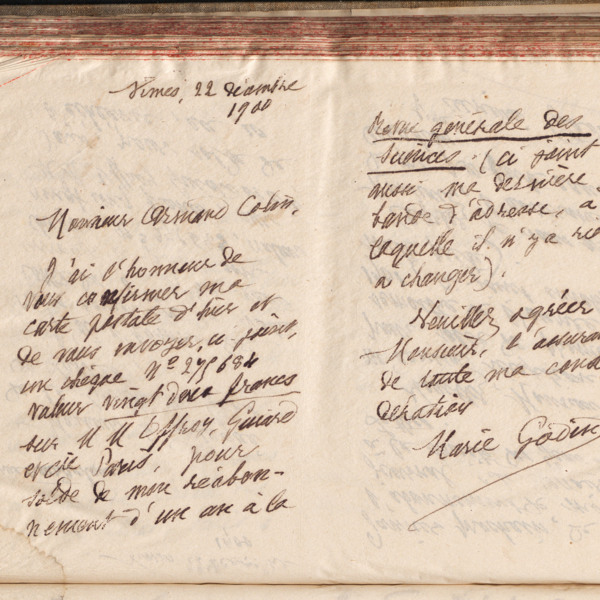 Nimes, 22 décembre
1900
Monsieur Armand Colin,
J'ai l'honneur de
vous confirmer ma
carte postale d'hier et
de vous envoyer, ci joint,
un chèque Nº 275684
valeur vingt deux francs
sur M M Offroy, Guiard
et Cie Paris, pour
solde de mon réabon-
nement d'un an à la
Revue générale des
Sciences. (ci joint
ma dernière
bande d'adresse, a
laquelle il n'y a rie
a changer).
Veuillez agréer
Monsieur, l'assuran
de toute ma consi
dération
Marie Godin